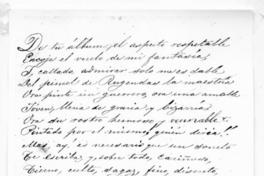 De tu álbum, el aspecto respetable
Encoge el vuelo de mi fantasía,
Y callado admirar solo me es dable
Del pincel de Rugendas la maestría
Ora pinte un guerrero, ora una amable
Jóven, llena de gracia y bizarría
Ora su rostro hermoso y venerable
Pintado por él mismo ¡quién diría!
Mas ay! es necesario que un soneto
Te escriba; y sobre todo, cariñoso,
Tierno, culto, sagaz, fino, discreto